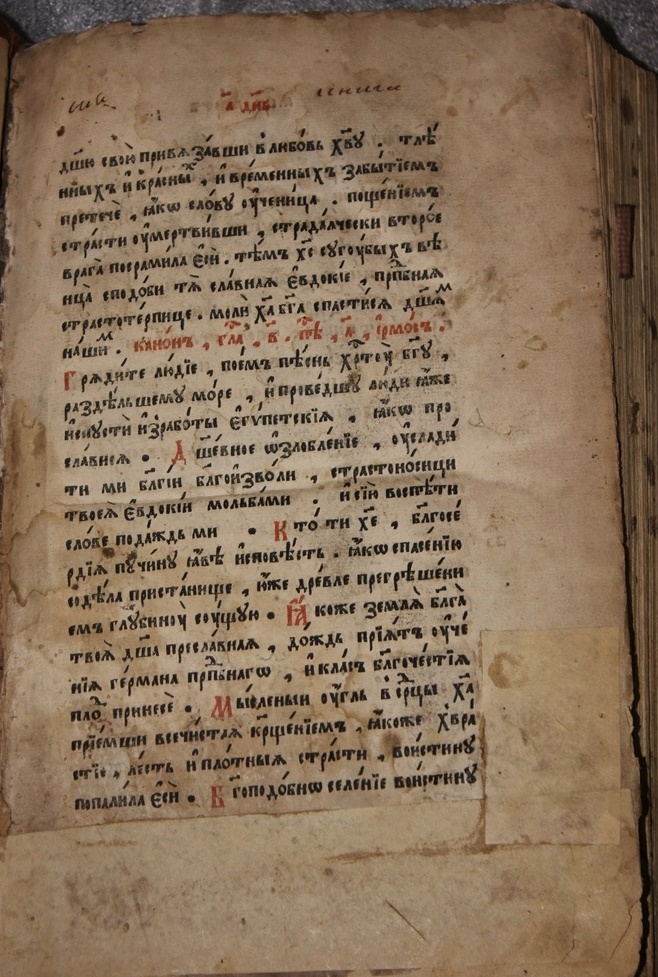 а҃ днь
дш҃ю свою̀ привѧза́вши в любо́вь хв҃у . тлѣ́
нныхъ и҆ кра́сныⷯ , и҆ вре́менныхъ забы́тїемъ
претечѐ , ꙗ҆́кѡ сло́ву ᲂу҆чени́ца . поще́нїемъ
стра́сти ᲂу҆мертви́вши , страда́лчески второ́е
врага̀ посрами́ла є҆сѝ . тѣ́мъ хс҃е сугу́быхъ вѣ
нца̀ сподо́би тѧ̀ сла́внаѧ є҆ѵдокі́е , прпⷣбнаѧ
страстоте́рпице . молѝ хс҃а бг҃а спасти́сѧ дш҃аⷨ
на́шиⷨ . кано́нъ , гла́ , в҃ . пѣⷭ , а҃ , і҆рмо́съ .
Грѧди́те лю́дїе , пое́мъ пѣ́снь хрⷭ҇тꙋ̀ бг҃у ,
раздѣ́льшему мо́ре , и҆ прове́дшу лю́ди ꙗ҆́же
и҆спустѝ и҆з рабо́ты є҆гѵ́петскїѧ , ꙗ҆́кѡ про
сла́висѧ . Дꙋше́вное ѡ҆злобле́нїе , ᲂу҆слади́
ти ми бл҃гі́и бл҃гоизво́ли , страстоно́сици
твоеѧ̀ є҆ѵдокі́и мольба́ми . и҆ сїѝ воспѣ́ти
сло́ве пода́ждь ми . Кто́ ти хс҃е , бл҃госе́
рдїѧ пучи́ну ꙗ҆́вѣ и҆сповѣ́сть . ꙗ҆́кѡ спасе́нїю
содѣ́ла приста́нище , ю҆́же дре́вле прегрѣше́ни
емъ глубино́й су́щую . Ꙗ҆́коже землѧ̀ бл҃га̀
твоѧ̀ дш҃а пресла́внаѧ , до́ждь прїѧ́тъ ᲂу҆че́
нїѧ ге́рмана прпⷣбнагѡ , и҆ кла́съ бл҃гоче́стїѧ
плоⷣ принесѐ . Мы́сленыи ᲂу҆́гль в срⷣцы хс҃а
прїе́мши всечи́стаѧ крⷭ҇ще́нїемъ , ꙗ҆́коже хвра́
стїе , ле́сть и҆ пло́тныѧ стра́сти , вои́стину
попали́ла є҆сѝ . Бг҃оподо́бнѡ селе́нїе вои́стину